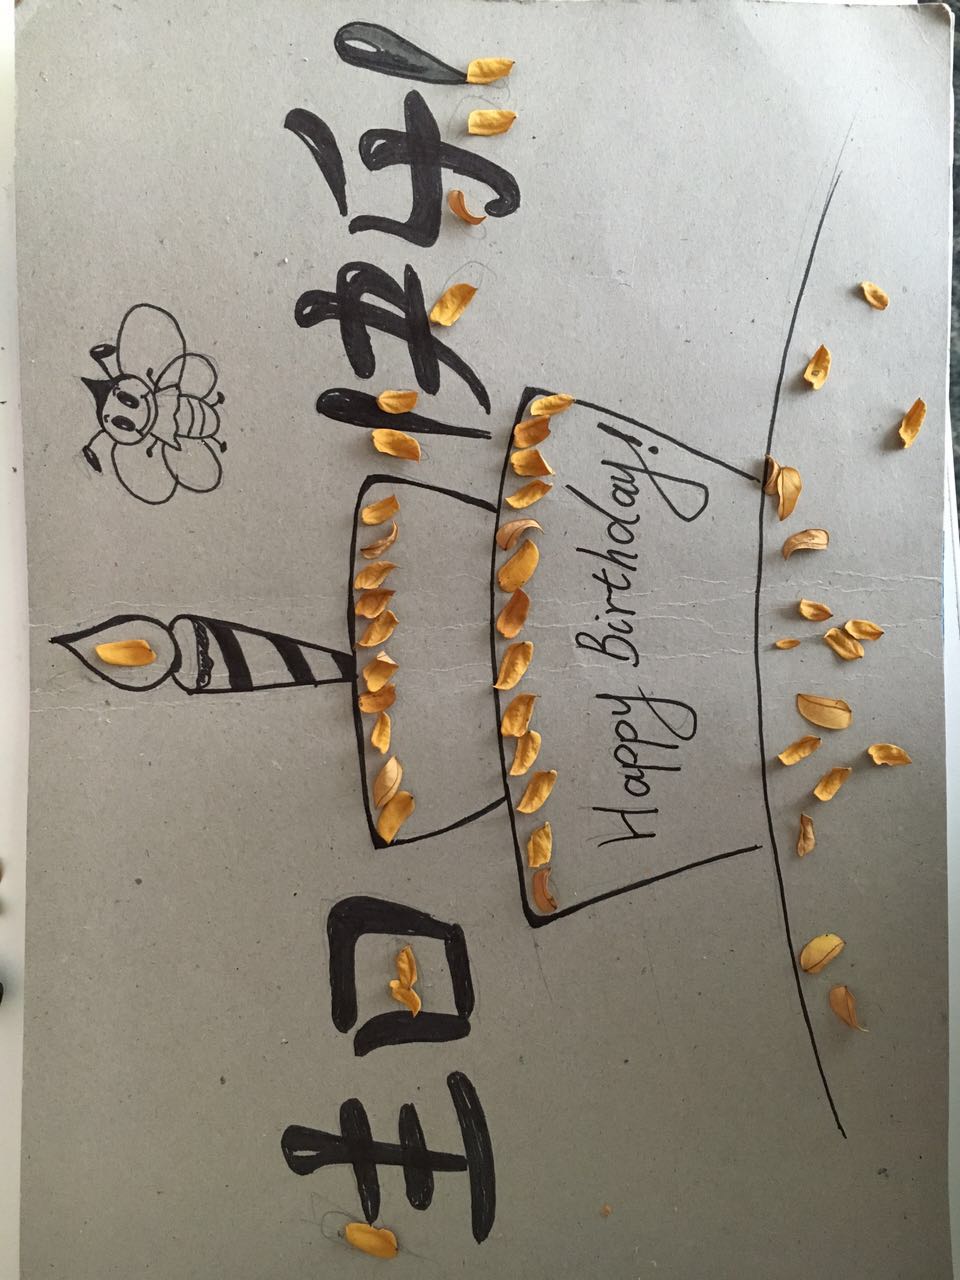 生日快乐!
Happy Birthday!